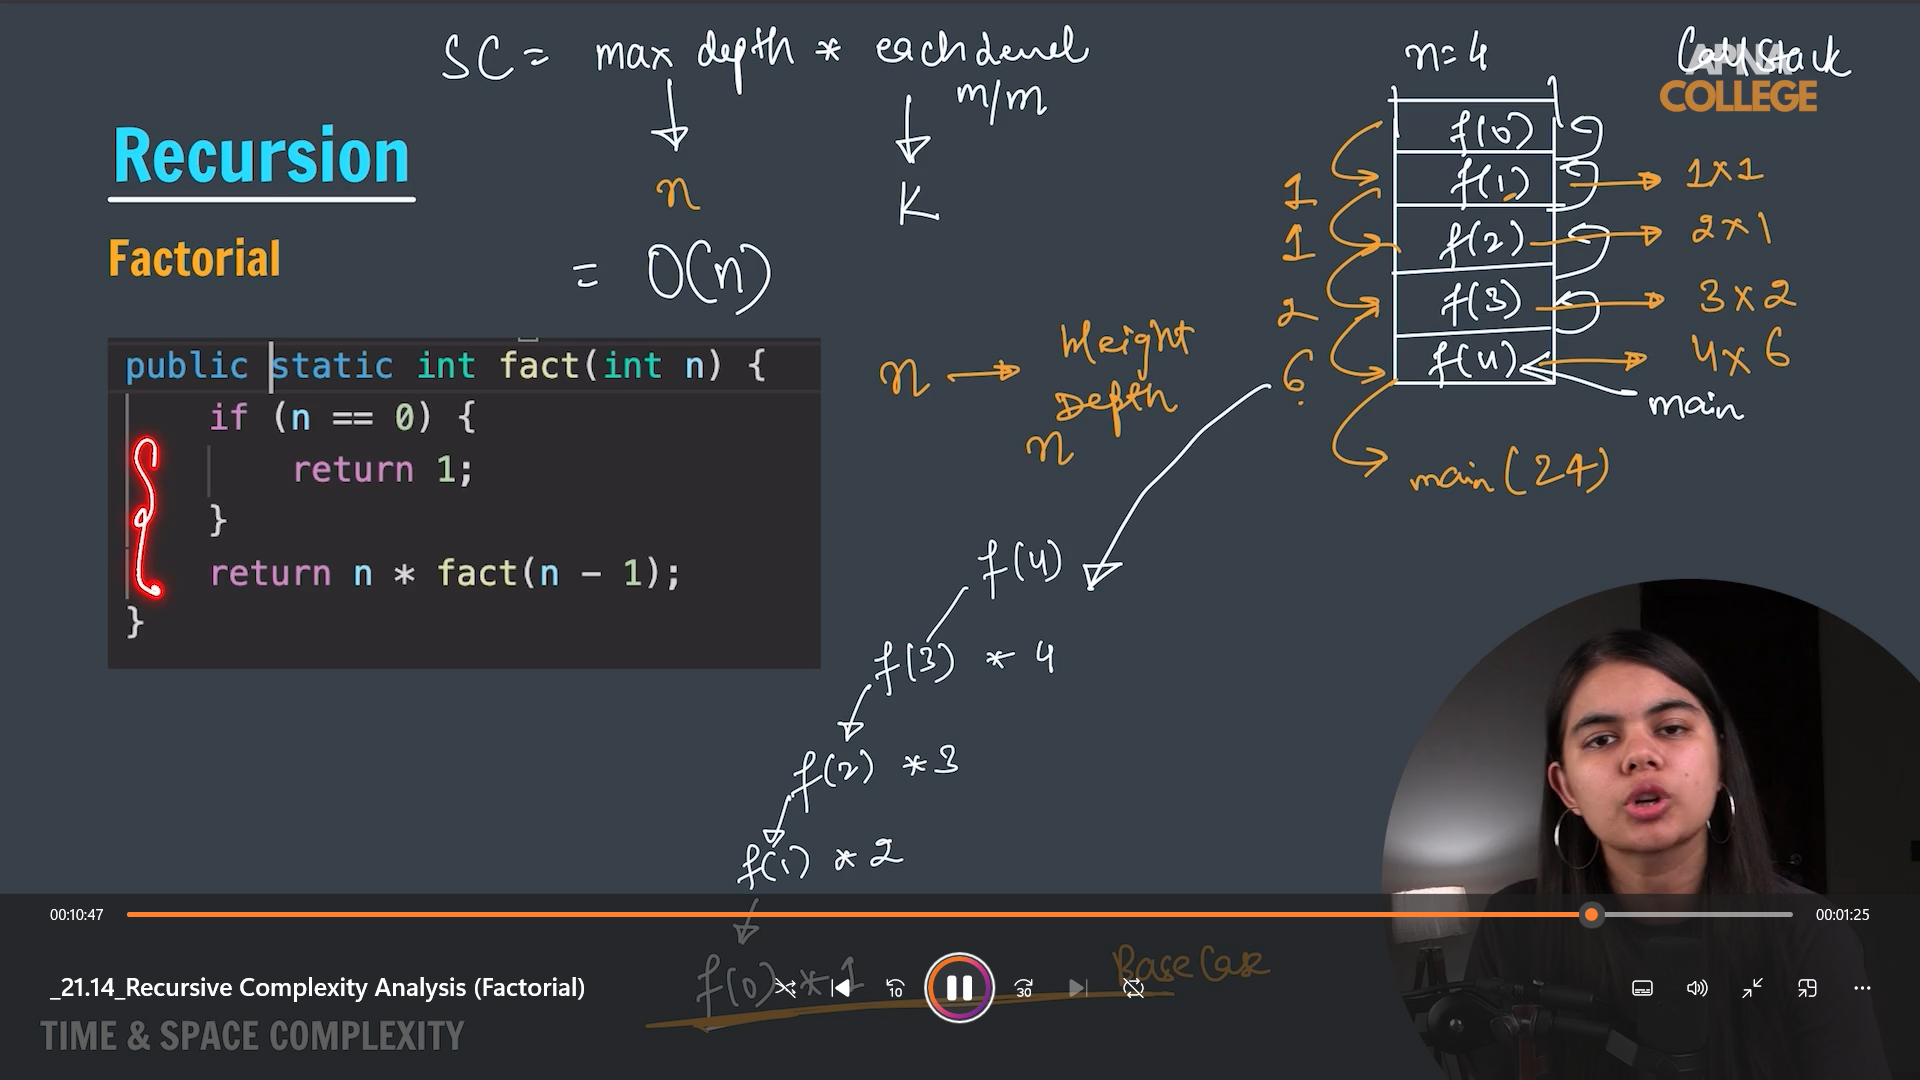 SC = max depth * each level
m/m
n
K
= O(n)
Recursion
Factorial
public static int fact(int n) {
if (n == 0) {
return 1;
}
return n * fact(n - 1);
}
n → Height
Depth
n
n=4
Call Stack
APNA
COLLEGE
f(0)
1 f(1) → 1x1
1 f(2) → 2x1
2 f(3) → 3x2
6 f(4) → 4x6
main
main(24)
f(4)
f(3) * 4
f(2) * 3
f(1) * 2
f(0) * 1
Base Case
00:10:47
00:01:25
_21.14_Recursive Complexity Analysis (Factorial)
10
30
TIME & SPACE COMPLEXITY